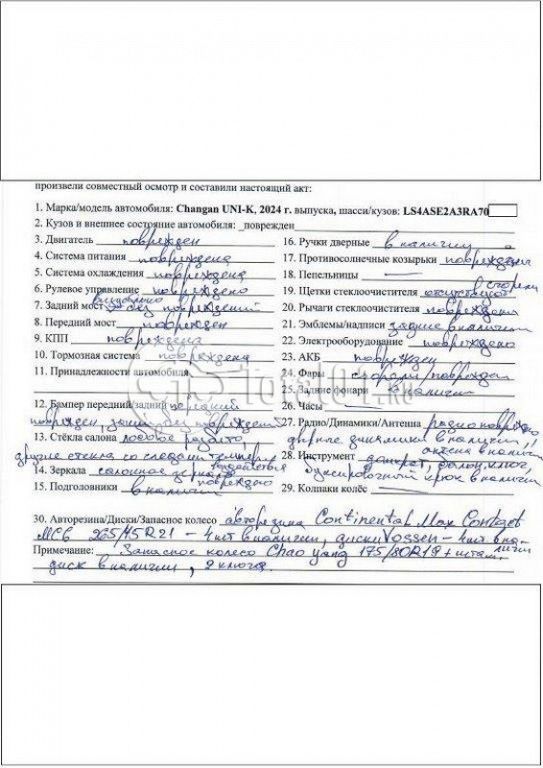 произвели совместный осмотр и составили настоящий акт:
1. Марка/модель автомобиля: Changan UNI-K, 2024 г. выпуска, шасси/кузов: LS4ASE2A3RA70
2. Кузов и внешнее состояние автомобиля: поврежден
3. Двигатель поврежден
4. Система питания повреждена
5. Система охлаждения повреждена
6. Рулевое управление повреждено
7. Задний мост визуально без повреждений
8. Передний мост поврежден
9. КПП повреждена
10. Тормозная система повреждена
11. Принадлежности автомобиля
12. Бампер передний/задний передний
поврежден, задний без повреждений
13. Стёкла салона лобовое разбито,
другие стекла со следами температ
воздействия
14. Зеркала салонное зеркало повреждено
15. Подголовники в наличии
16. Ручки дверные в наличии
17. Противосолнечные козырьки повреждены
18. Пепельницы —
19. Щетки стеклоочистителя сгорели
20. Рычаги стеклоочистителя повреждены
21. Эмблемы/надписи задние в наличии
22. Электрооборудование повреждено
23. АКБ поврежден
24. Фары сгорели/поврежден
25. Задние фонари в наличии
26. Часы —
27. Радио/Динамики/Антенна радио поврежд,
дверные динамики в наличии,
антена в наличии
28. Инструмент домкрат, балон. ключ,
буксировочный крюк в наличии
29. Колпаки колёс —
30. Авторезина/Диски/Запасное колесо авторезина Continental Max Contact
MC6 265/45 R21 - 4 шт в наличии, диски Vossen - 4 шт в наличии
Примечание: Запасное колесо Chao yang 175/80R19 + штам.
диск в наличии, 2 ключа.